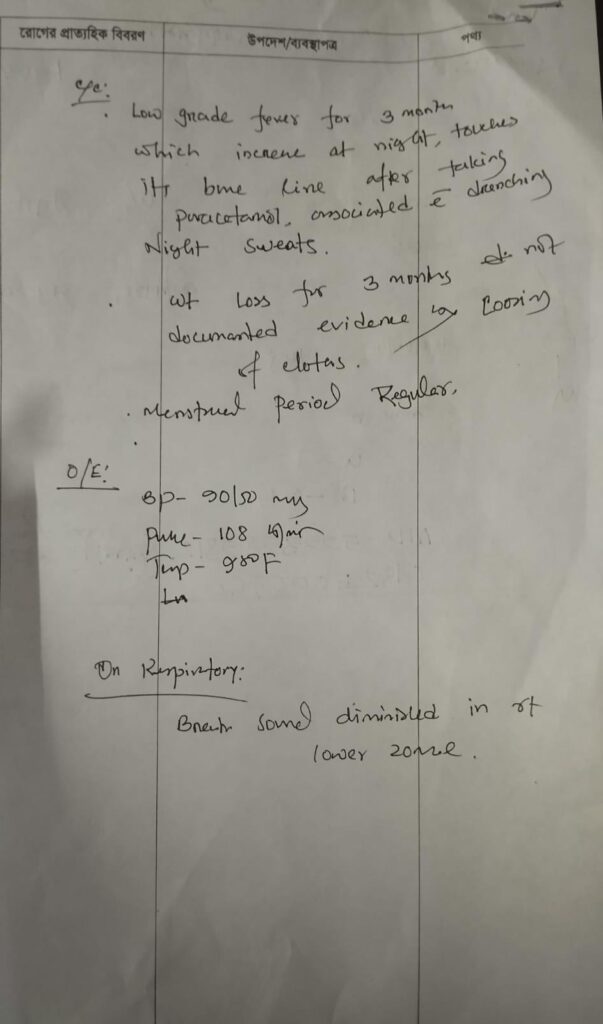 রোগের প্রাত্যহিক বিবরণ উপদেশ/ব্যবস্থাপত্র পথ্য
c/c:
. Low grade fever for 3 months
which increne at night, touches
its bme line after taking
puracetamol, associated c̄ drenching
Night sweats.
. wt Loss for 3 months do not
documented evidence loosing
of cloths.
. Menstrual period Regular.
.
O/E:
BP- 90/50 mmHg
Pulse- 108 b/min
Temp- 980F
Ln
On Respiratory:
Breath sound diminished in rt
lower zone.